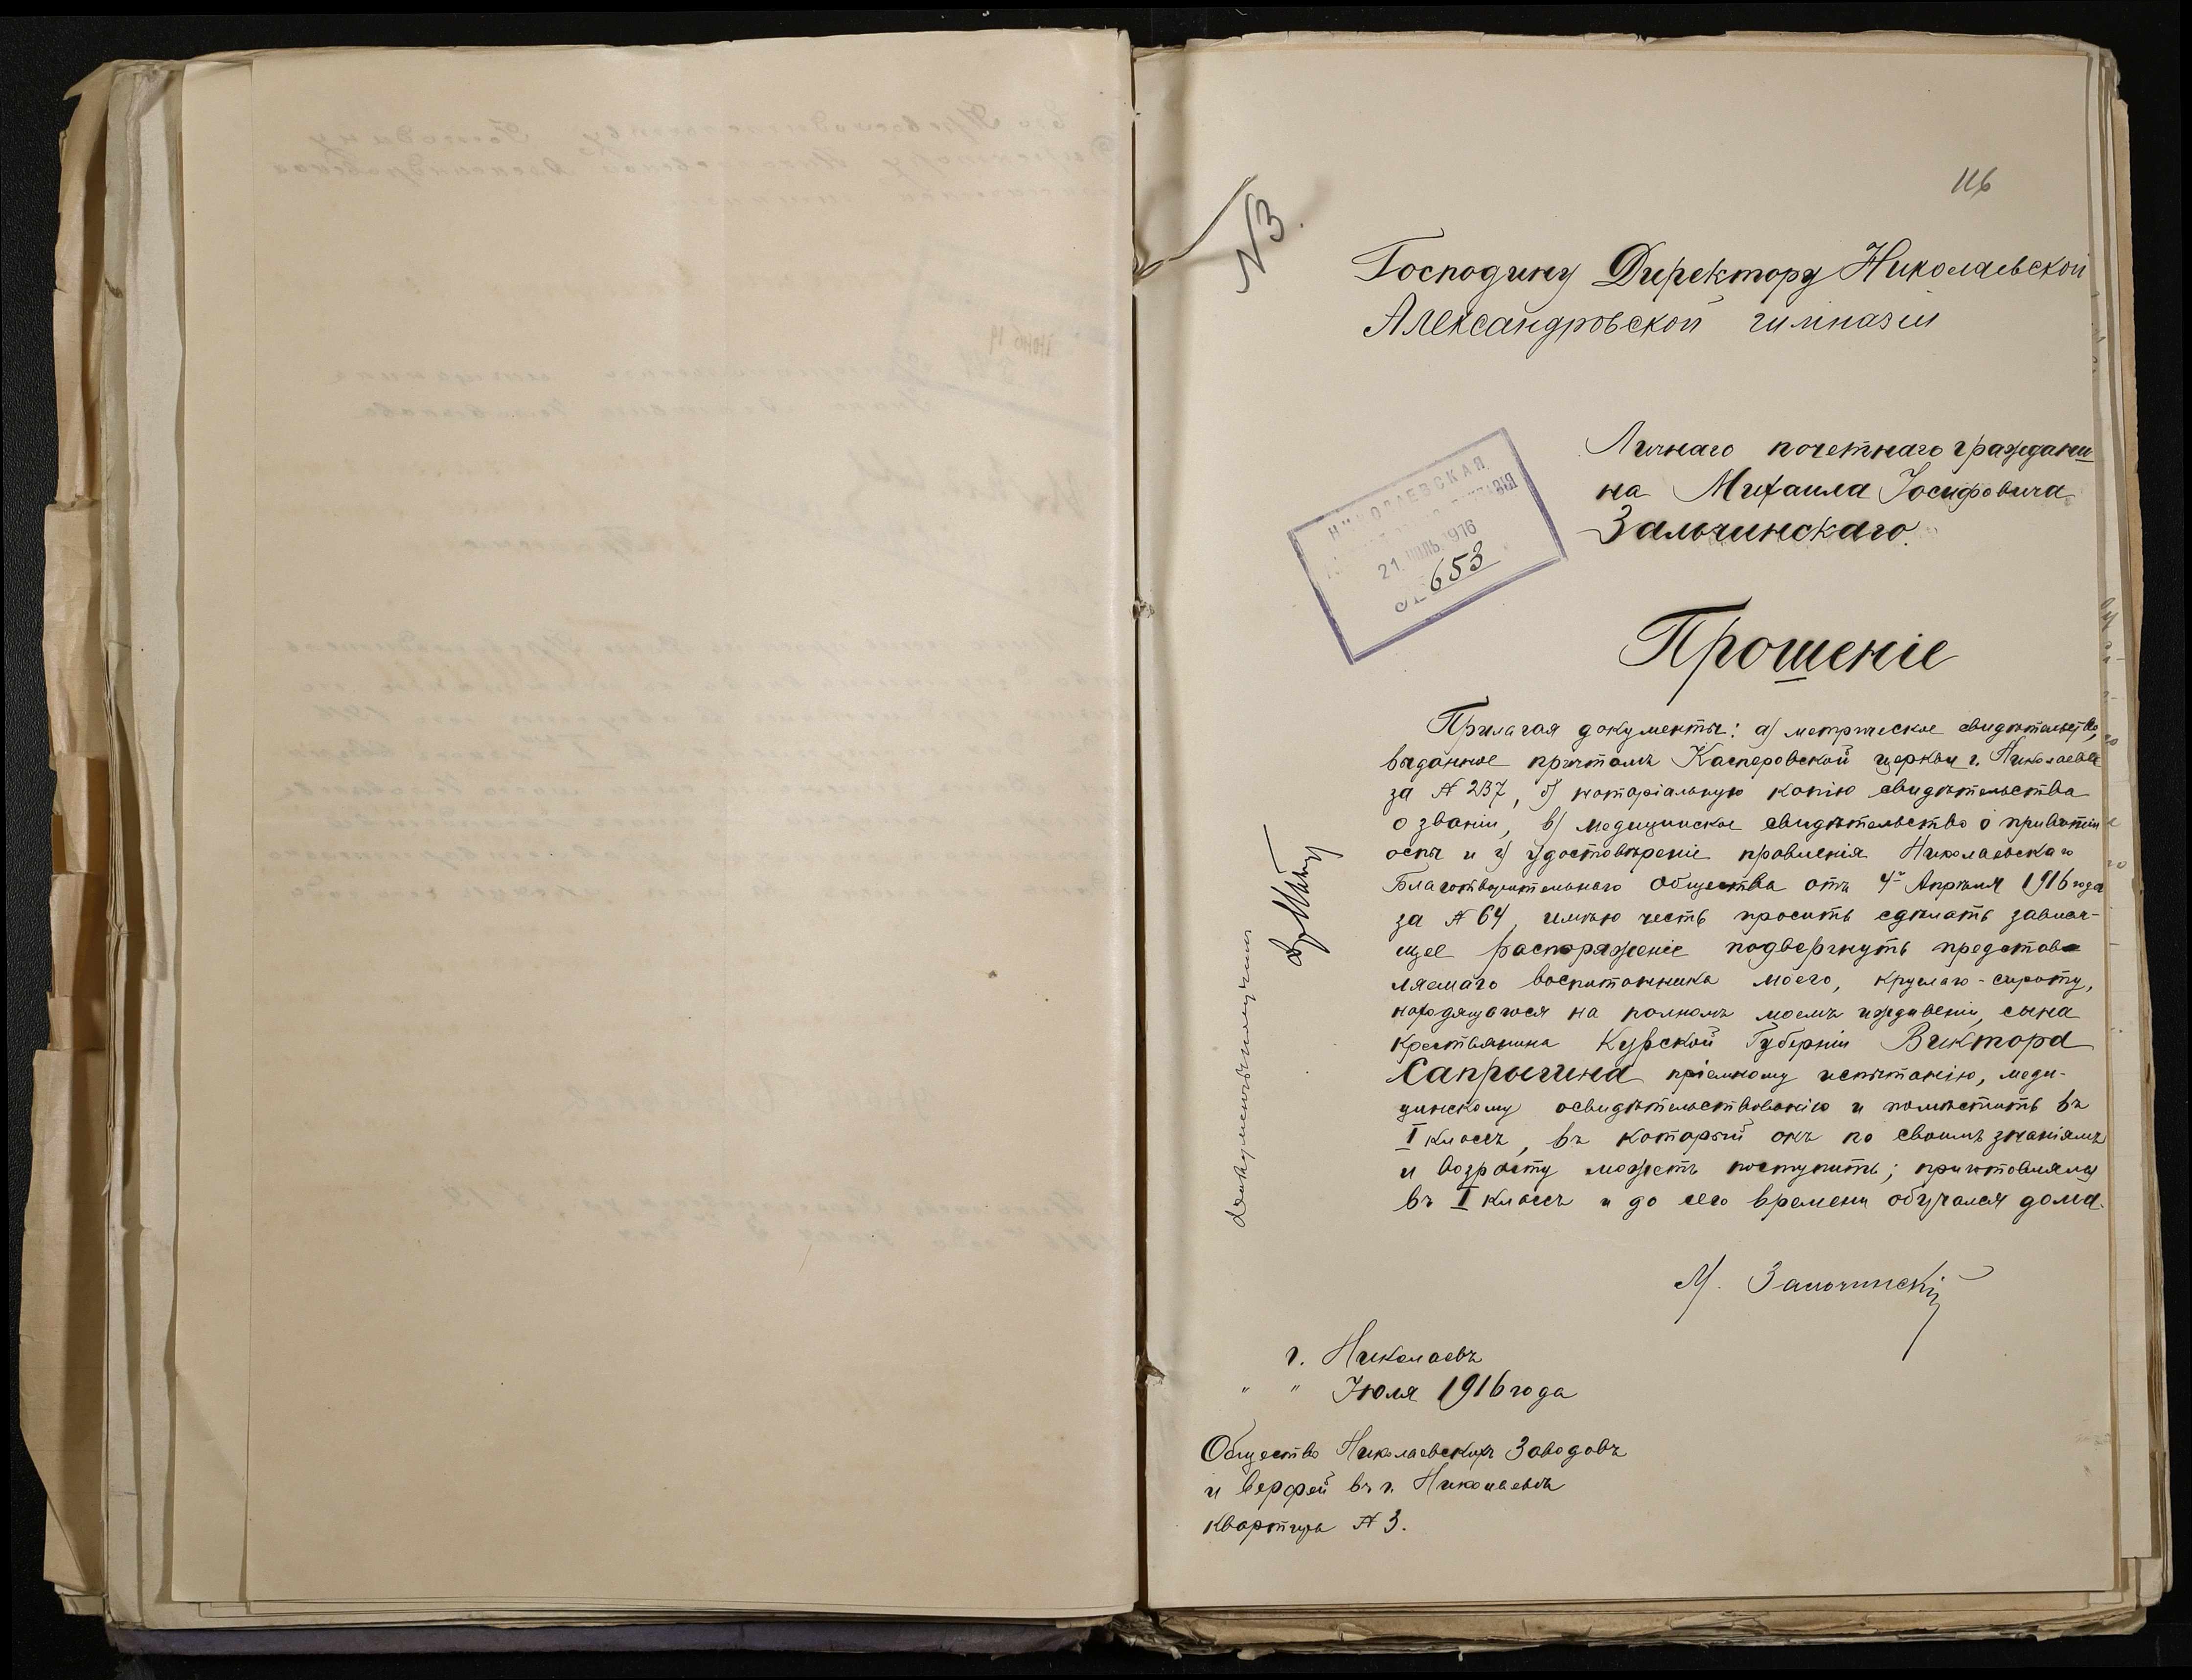 116
N 3.
Господину Директору Николаевской
Александровской гимназіи
Личнаго почетнаго граждани-
на Михаила Іосифовича
Зальчинскаго.
НИКОЛАЕВСКАЯ
21 ІЮЛЬ 1916
№ 653
Прошеніе
Прилагая документы: а) метрическое свидѣтельство,
выданное причтомъ Касперовской церкви г. Николаева
за № 237, б) нотаріальную копію свидѣтельства
о званіи, в) медицинское свидѣтельство о привитіи
оспы и г) удостовѣреніе правленія Николаевскаго
Благотворительнаго Общества отъ 4го Апрѣля 1916 года
за № 64, имѣю честь просить сдѣлать зависи-
щее распоряженіе подвергнуть представ-
ляемаго воспитанника моего, круглаго-сироту,
находящагося на полномъ моемъ иждивеніи, сына
крестьянина Курской Губерніи Виктора
Сапрыгина пріемному испытанію, меди-
цинскому освидѣтельствованію и помѣстить въ
I классъ, въ который онъ по своимъ знаніямъ
и возрасту можетъ поступить; приготовлялся
въ I классъ и до сего времени обучался дома.
М. Зальчинскій
г. Николаевъ
" " Іюля 1916 года
Общество Николаевскихъ Заводовъ
и верфей въ г. Николаевѣ
квартира № 3.